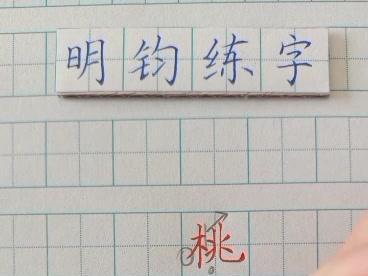 明钧练字
桃